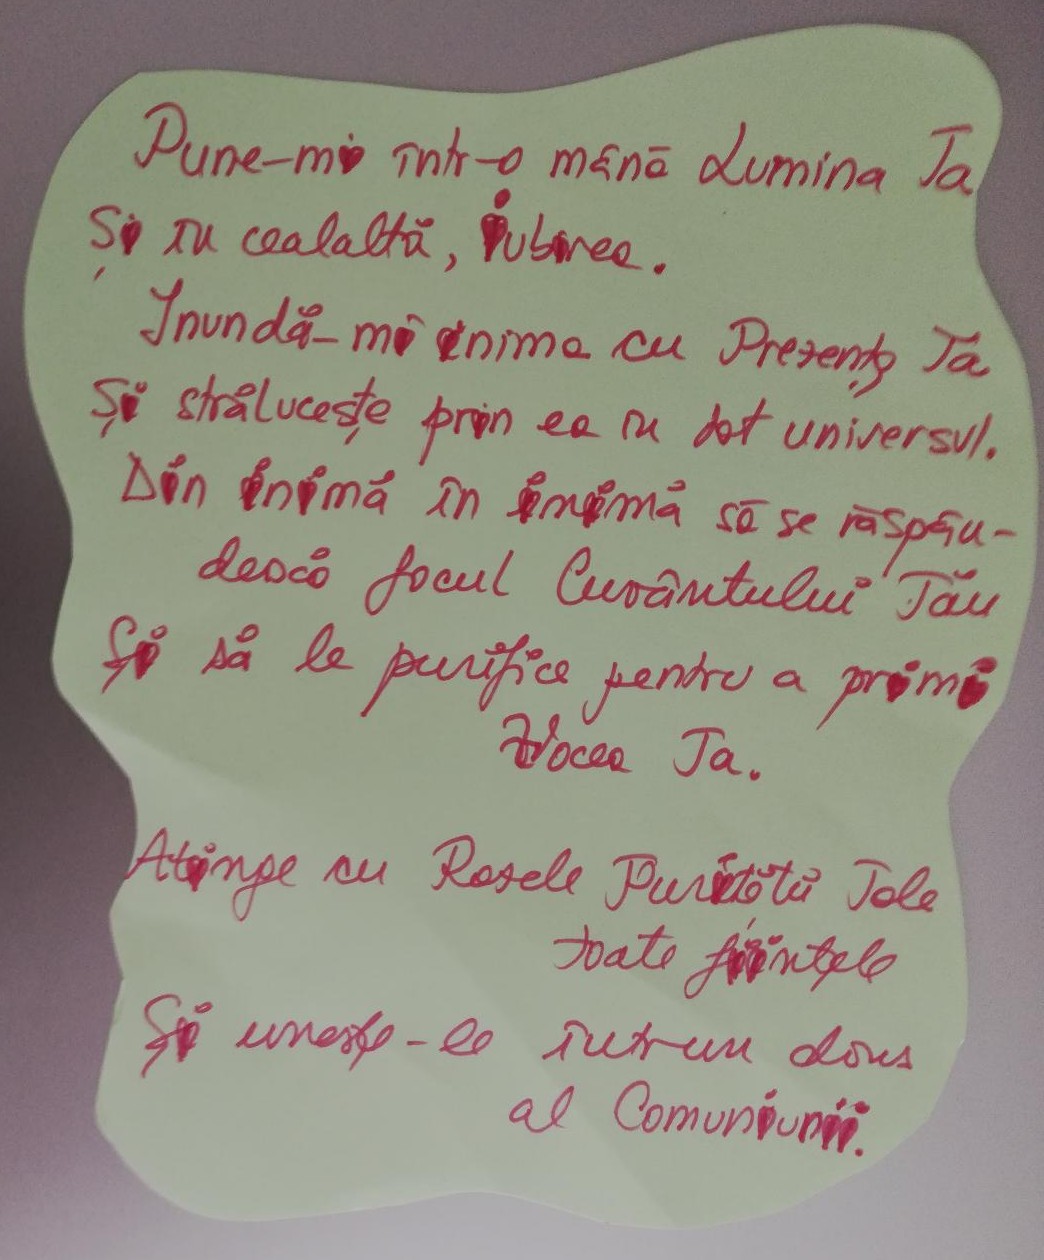 Pune-mi într-o mână Lumina Ta
Și în cealaltă, Iubirea.
Inundă-mi inima cu Prezența Ta
Și strălucește prin ea în tot universul.
Din inimă în inimă să se răspân-
descă focul Cuvântului Tău
Și să le purifice pentru a primi
Vocea Ta.
Atinge cu Rozele Purității Tale
toate ființele
Și unește-le într-un dans
al Comuniunii.